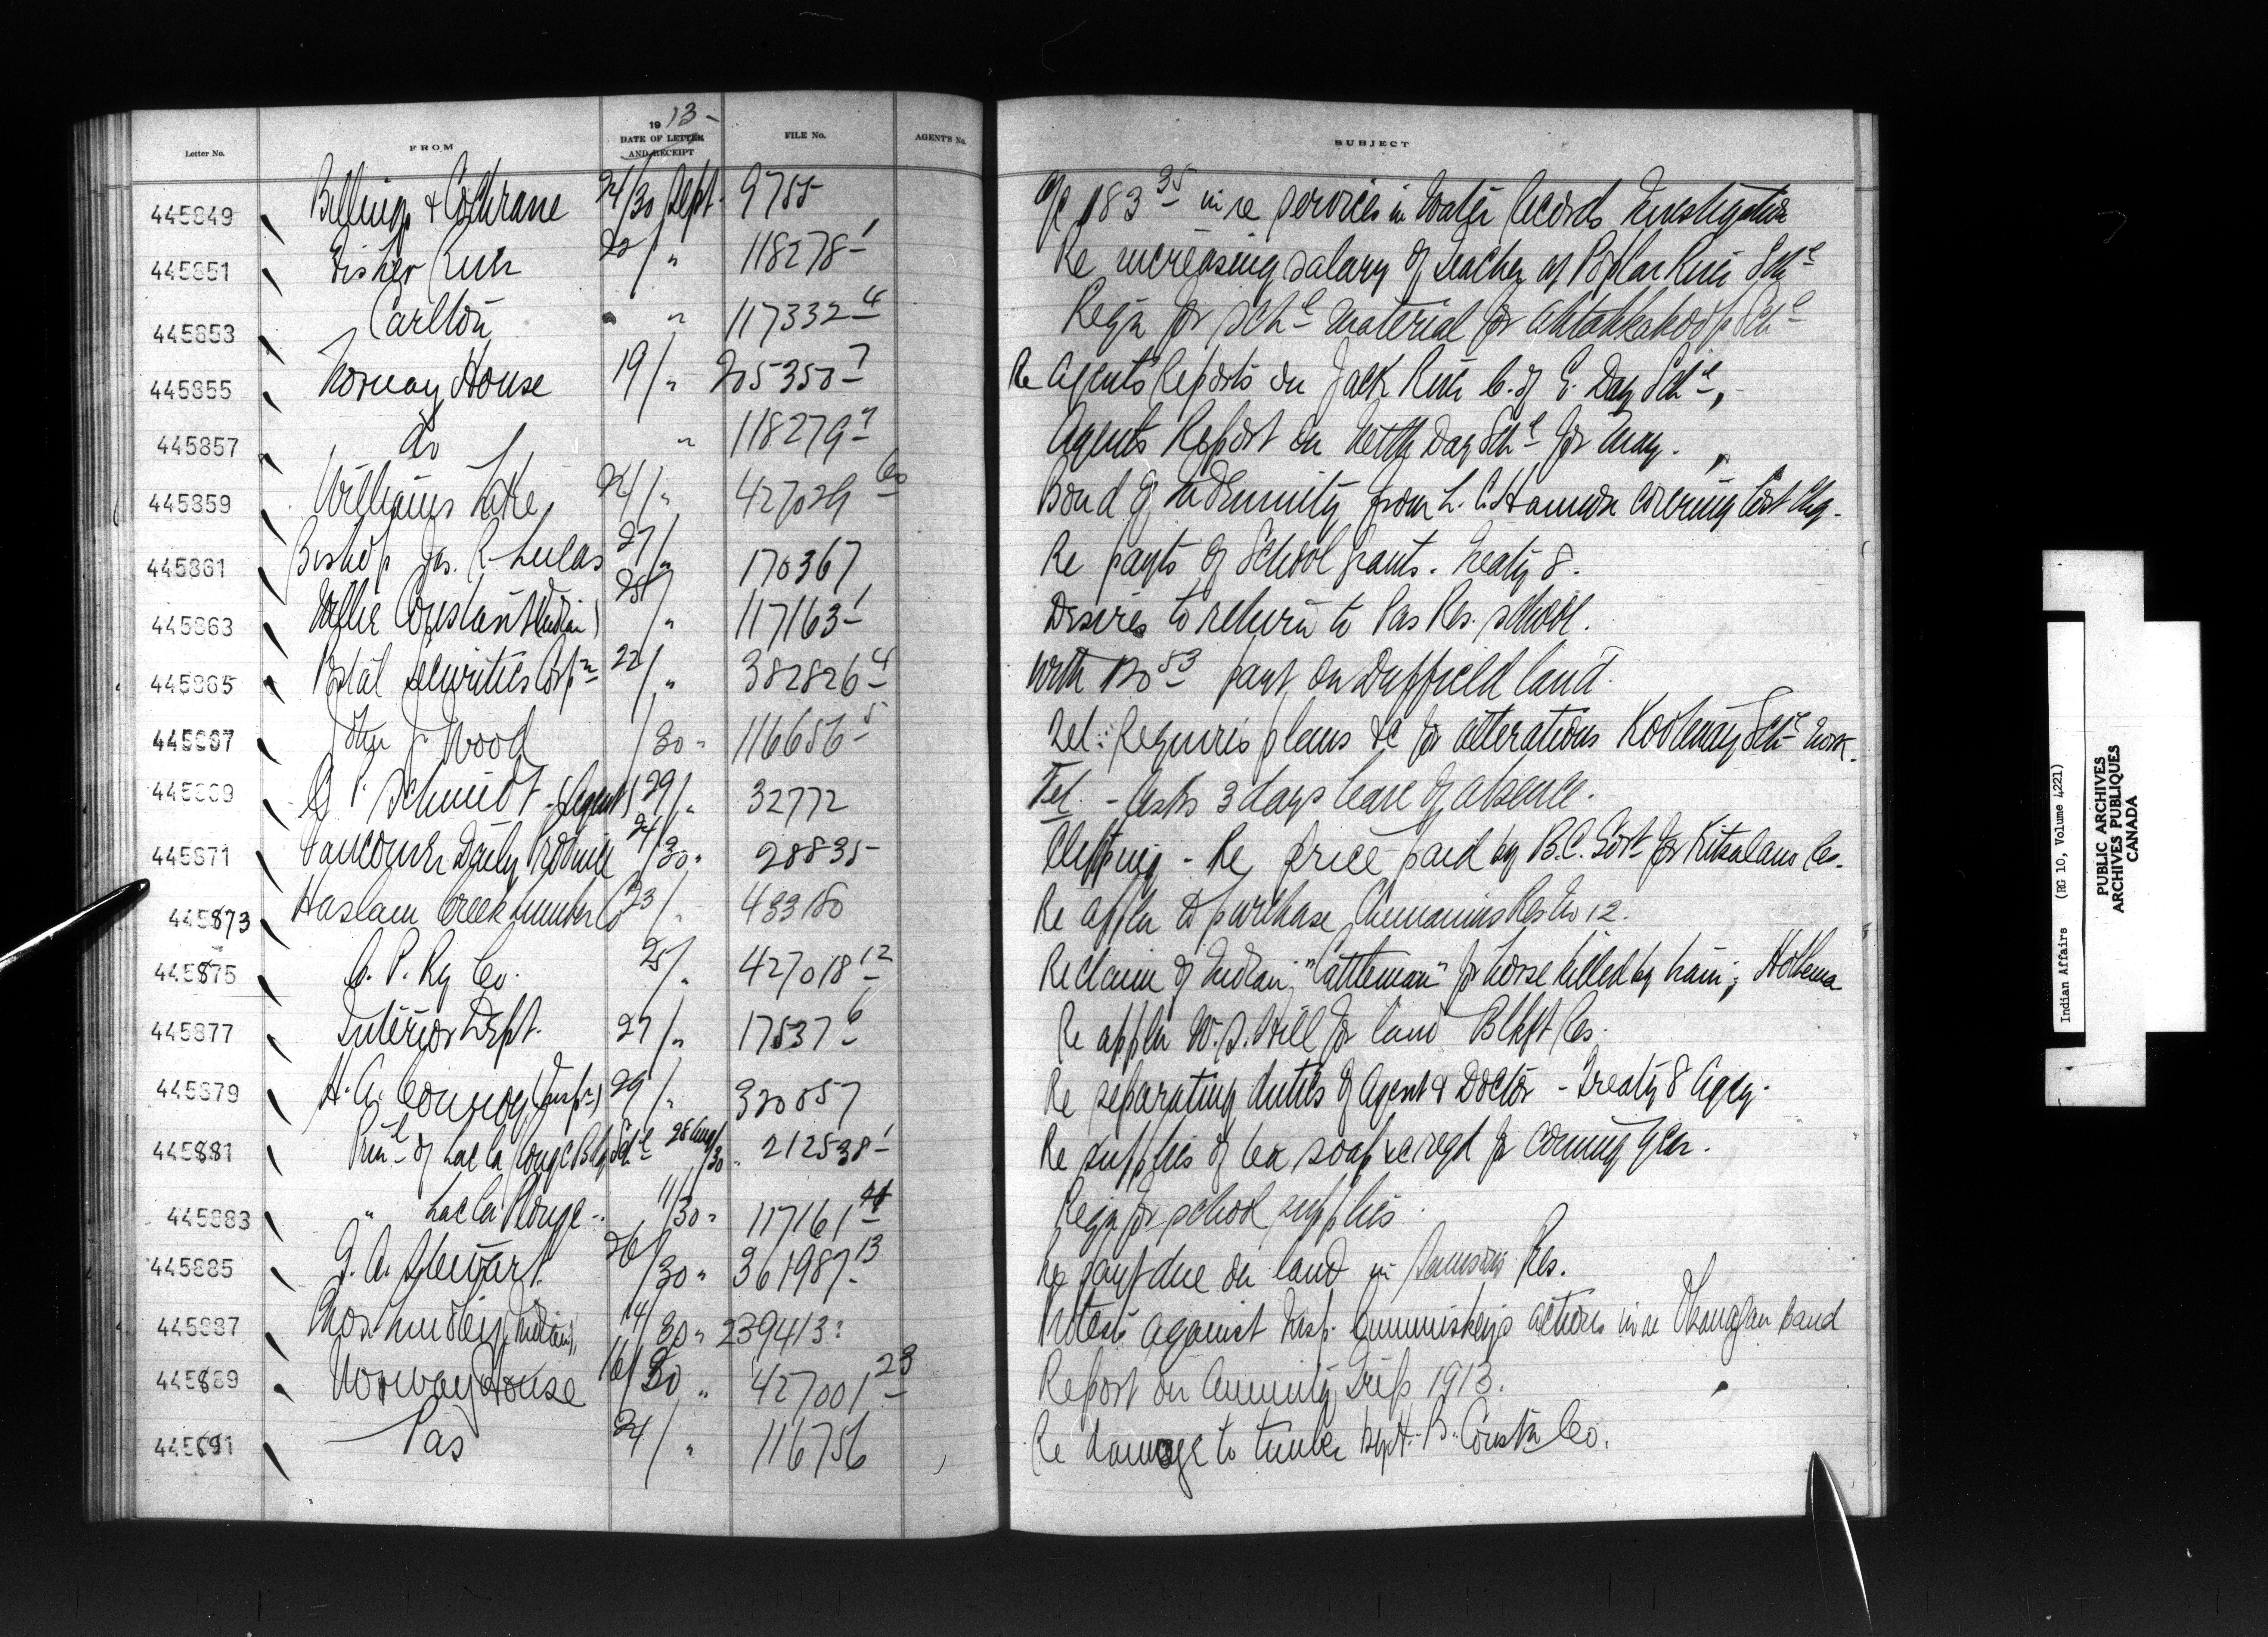 Letter No. FROM 1913- DATE OF LETTER AND RECEIPT FILE No. AGENT'S No. SUBJECT
445849 Billings & Cochrane 24/30 Sept. 9755 a/c 183 35 in re services in Water Records Investigation
445851 Fisher River 22/ " 118278-1 Re increasing salary of teacher at Poplar River Schl
445853 Carlton " " 117332-4 Reqn for schl material for Ahtahkakoop Schl
445855 Norway House 19/ " 205350-7 Re Agents Reports on Jack River C. of E. Day Schl
445857 do " 118279 Agents Report on Day Schl for May.
445859 Williams Lake 24/ " 427029 60 Bond of Indemnity from L. C. covering lost chq.
445861 Bishop Jas. R. Lucas 27/ " 170367 Re payts of School Grants. Treaty 8.
445863 Constant (Indian) 25/ " 117163-1 Desires to return to Pas Res. school.
445865 Postal Securities Corpn 22/ " 382826-4 With 120 53 payt on Duffield land.
445867 John J. Wood /30 " 116656-5 Tel: Requires plans &c for alterations Kootenay Schl work.
445869 G. P. Schmidt - (Agent) 29/ " 32772 Tel - Asks 3 days leave of absence.
445871 Vancouver Daily Province 24/30 " 28835 Clipping - Re price paid by B.C. Govt for Kitsalano Res.
445873 Haslam Creek Lumber Co 23/ " 433180 Re appln to purchase Chemainus Res No 12.
445875 C. P. Ry Co. 25/ " 427018-12 Re claim of Indian, "Cattleman" for horse killed by train; Hobbema
445877 Interior Dept. 27/ " 17537-6 Re appln W. S. Hill for land Blkft Res.
445879 H. A. Conroy (Inspr) 29/ " 320057 Re separating duties of Agent & Doctor - Treaty 8 Agcy.
445881 Prinl of Lac la Ronge Bdg Schl 28 Aug/30 " 212538-1 Re supplies of tea soap &c reqd for coming year.
445883 " Lac la Ronge " 11/30 " 117161 Reqn for school supplies
445885 J. A. Stewart. 26/30 " 361987-13 Re payt due on land in Samsons Res.
445887 Chos. Lindley (Indian), 14/30 " 239413 Protests against Insp. Cummiskey's actions in re Okanagan band
445889 Norway House 16/30 " 427001-23 Report on Annuity Trip 1913.
445891 Pas 24/ " 116756 Re damage to timber by H. B. Constn Co.
Indian Affairs (RG 10, Volume 4221)
PUBLIC ARCHIVES
ARCHIVES PUBLIQUES
CANADA